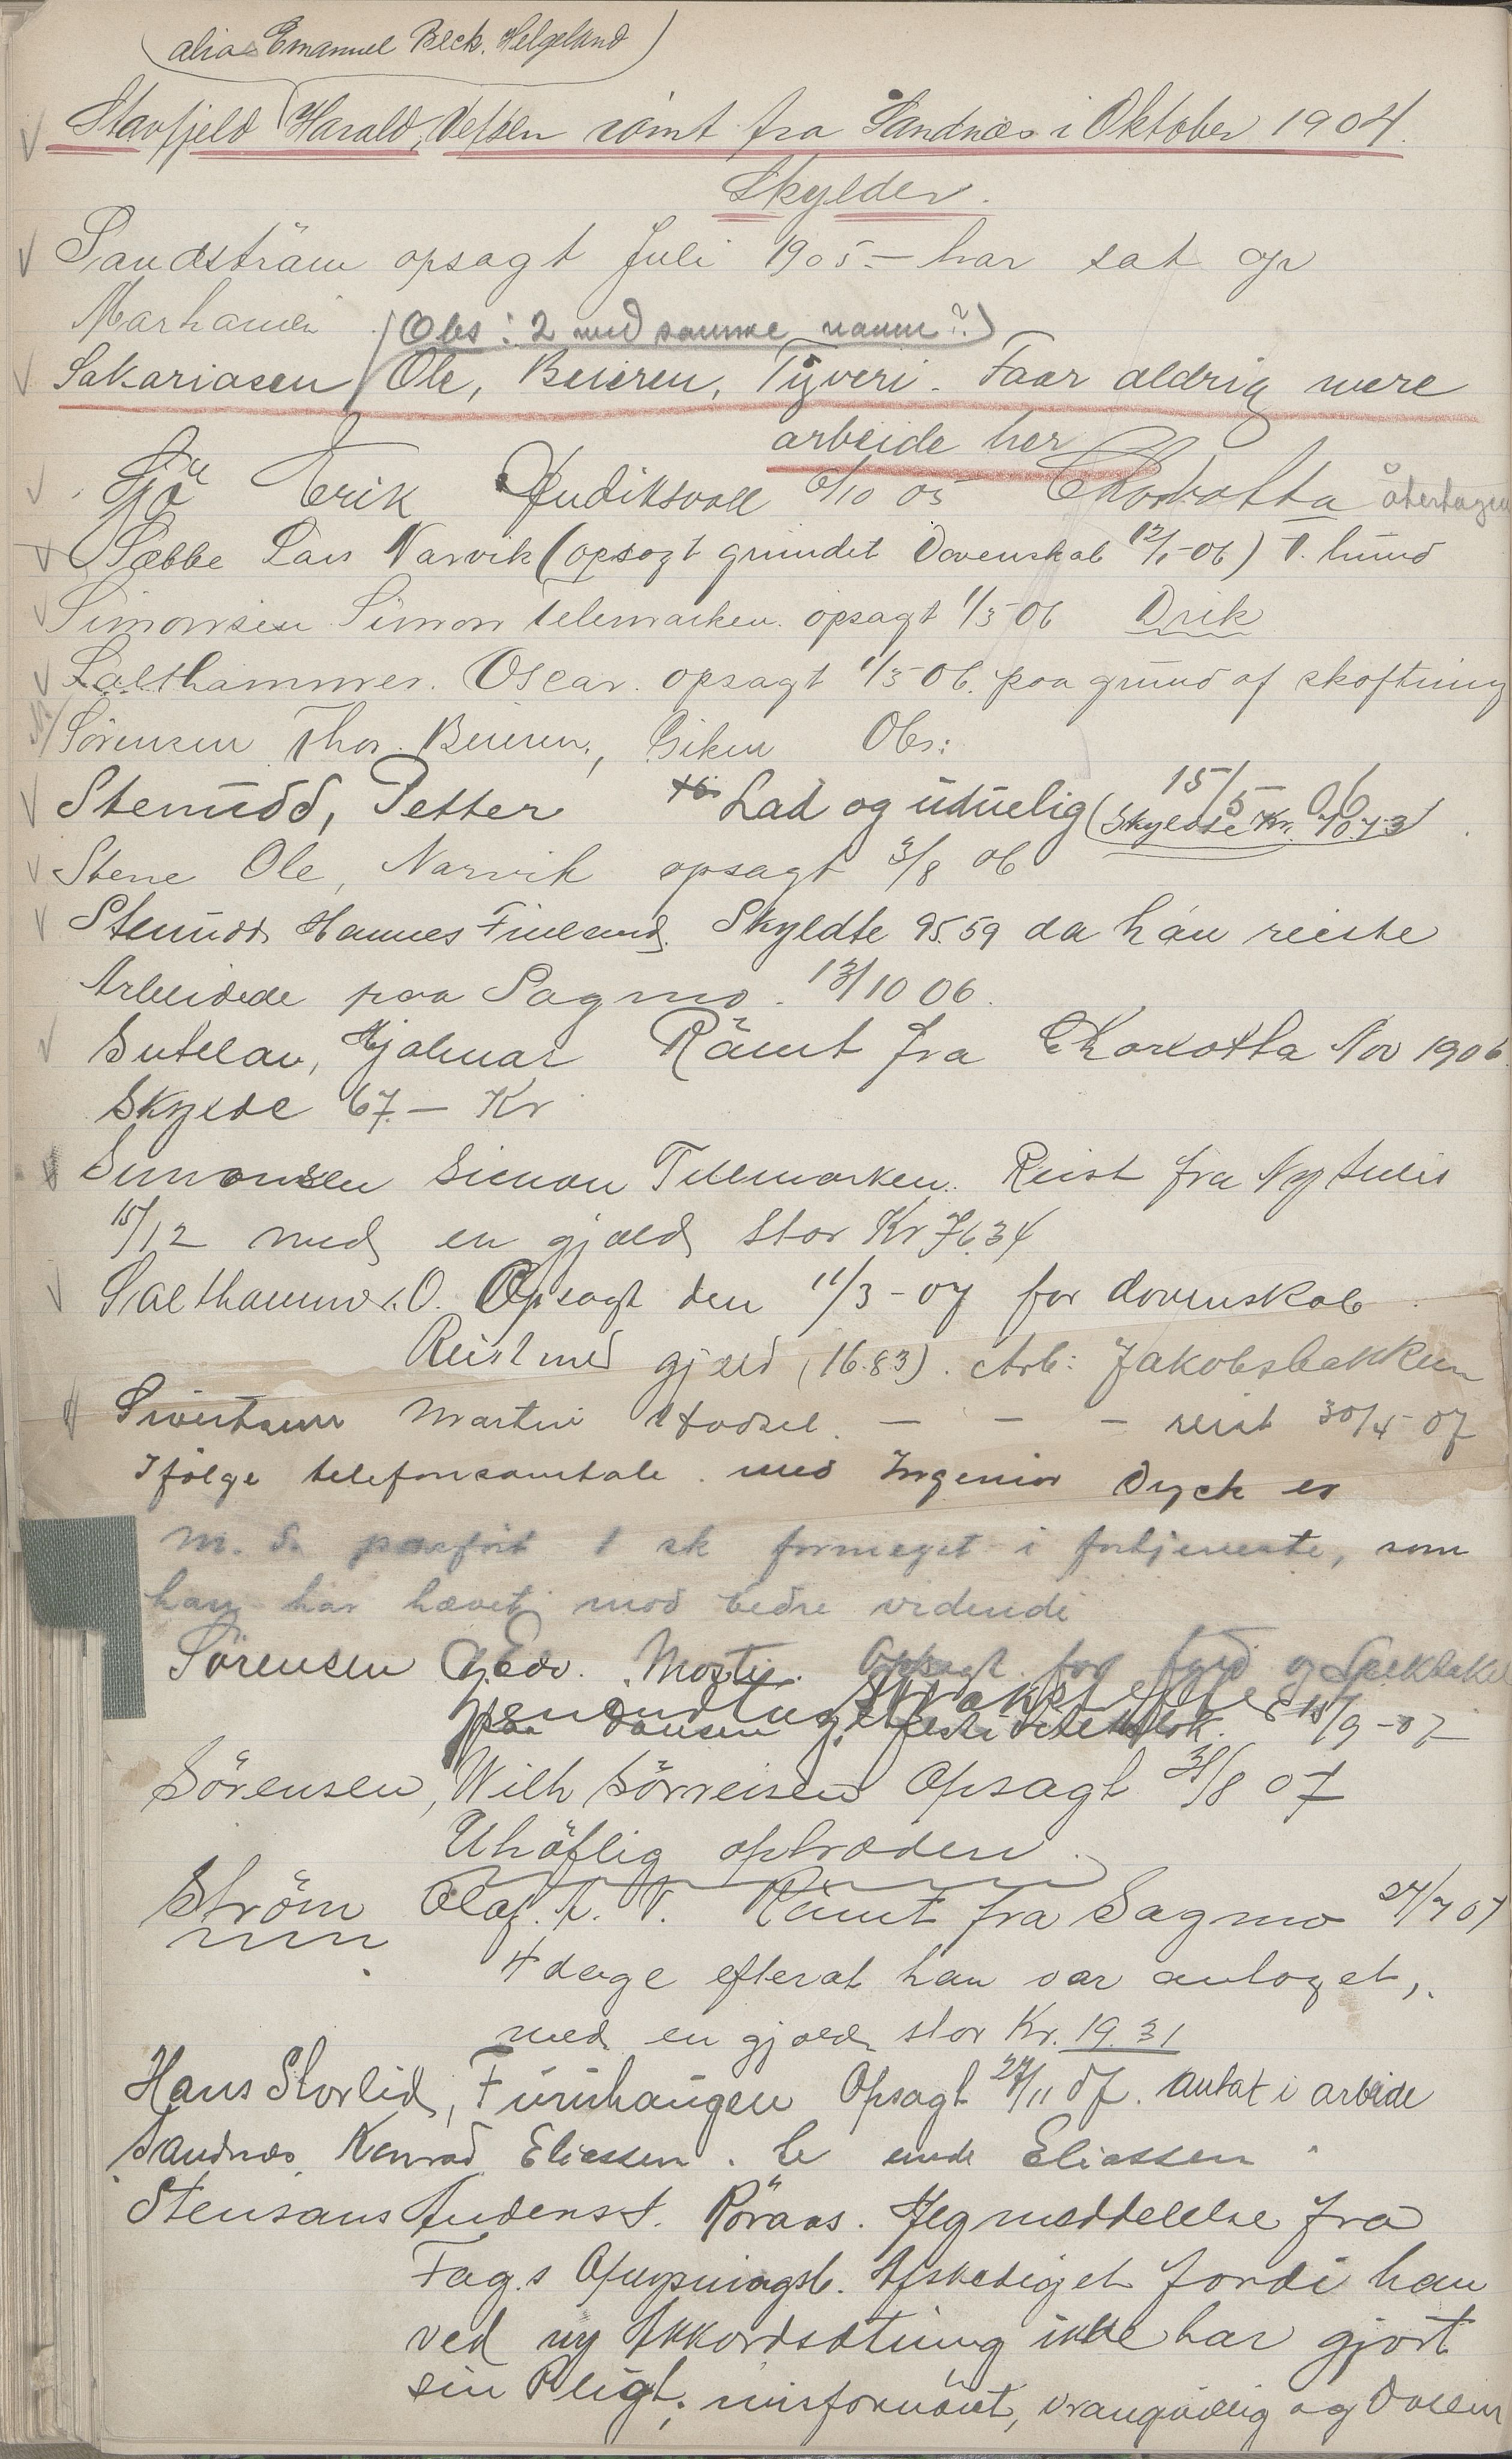 (alias Emanuel Beck. Helgeland)
Stavfjeld Harald, Vefsen römt fra Sandnæs i Oktober 1904.
Skylder.
Sandsträm opsagt Juli 1905 - har sat op
(Obs: 2 med samme navn?)
Sakariasen Ole, Beieren, Tyveri. Faar aldrig mere
arbeide her
Sjö Erik Hudiksvall 6/10 05 Charlotta återtagen
Sæbbe Lars Narvik (opsagt grundet Dovenskab 12/1-06) T. hund
Simonsen Simon Telemarken. opsagt 1/5 06 Drik
Salthammer. Oscar. opsagt 1/5 06. paa grund af skoftning
Sörensen Thor. Beieren, Giken Obs:
Stenudd, Petter Lad og uduelig 15/5 06 (Skyldte Kr. 70.73)
Stene Ole, Narvik opsagt 3/8 06
Stenudd Hannes Finland. Skyldte 95.59 da han reiste
Arbeidede paa Sagmo. 13/10 06.
Sutelav, Hjalmar Römt fra Charlotta Nov 1906
Skylde 67.- Kr
Simonsen Simon Telemarken. Reist fra Ny Sulis
15/12 med en gjæld stor Kr 76.34
Salthammer. O. Opsagt den 11/3-07 for dovenskab
Reist med gjæld (16.83). Arb: Jakobsbakken
Sivertsen Martin Hadsel. - - - reist 30/4-07
Ifölge telefonsamtale. med Ingeniör Dyck er
M. S. paaført 1 sk formeget i fortjeneste, som
han har hævet mod bedre vidende
Sörensen Edv. Opsagt for fyld og Spektakel
Gjenindtaget Strakst efter
paa dansen 15/9-07
Sörensen, Wilh Sörreisen Opsagt 31/8 07
Uhöflig optræden.
Ström Olaf. A. V. Römt fra Sagmo 24/7 07
4 dage efterat han var antaget,
med en gjæld stor Kr. 19.31
Hans Storlid, Furuhaugen Opsagt 27/11 07. Antat i arbeide
Sandnæs, Konrad Eliassen. Se unde Eliassen
Stensaas Anders S. Röraas. Jfg meddelelse fra
Fag.s Opsyningsb. Afskediget fordi han
ved ny Akkordsætning ikke har gjort
sin Pligt; misfornöiet, vrangvillig og Doven